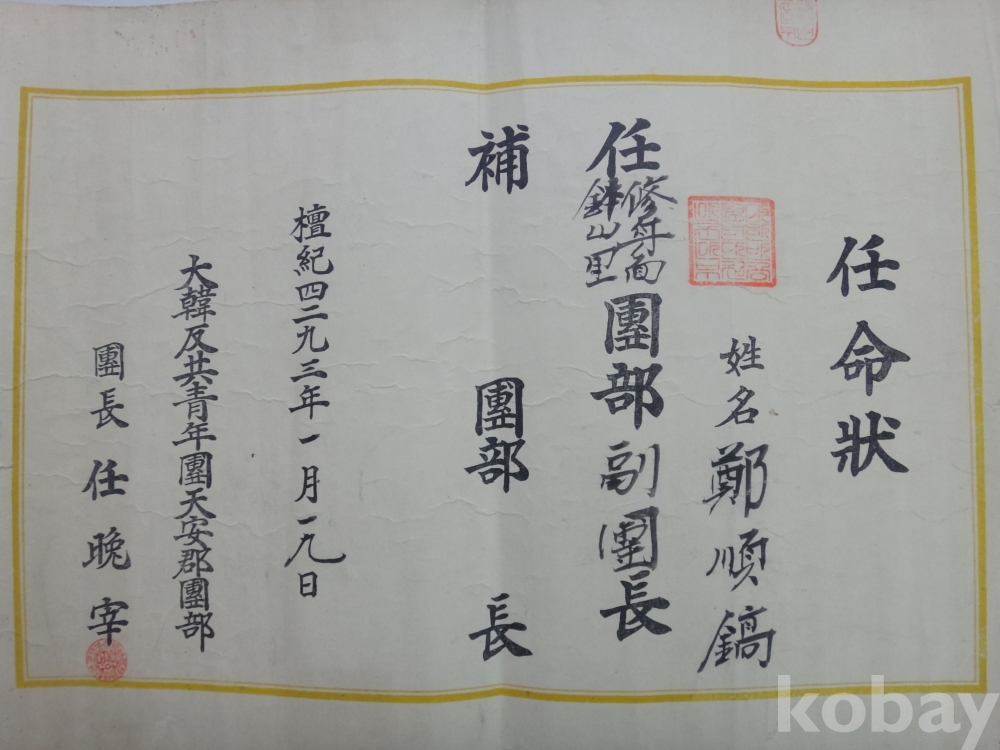 任命狀
姓名 鄭順鎬
任 修身面 鉢山里 團部副團長
補 團部長
檀紀四二九三年一月一九日
大韓反共青年團天安郡團部
團長 任晚宰
kobay